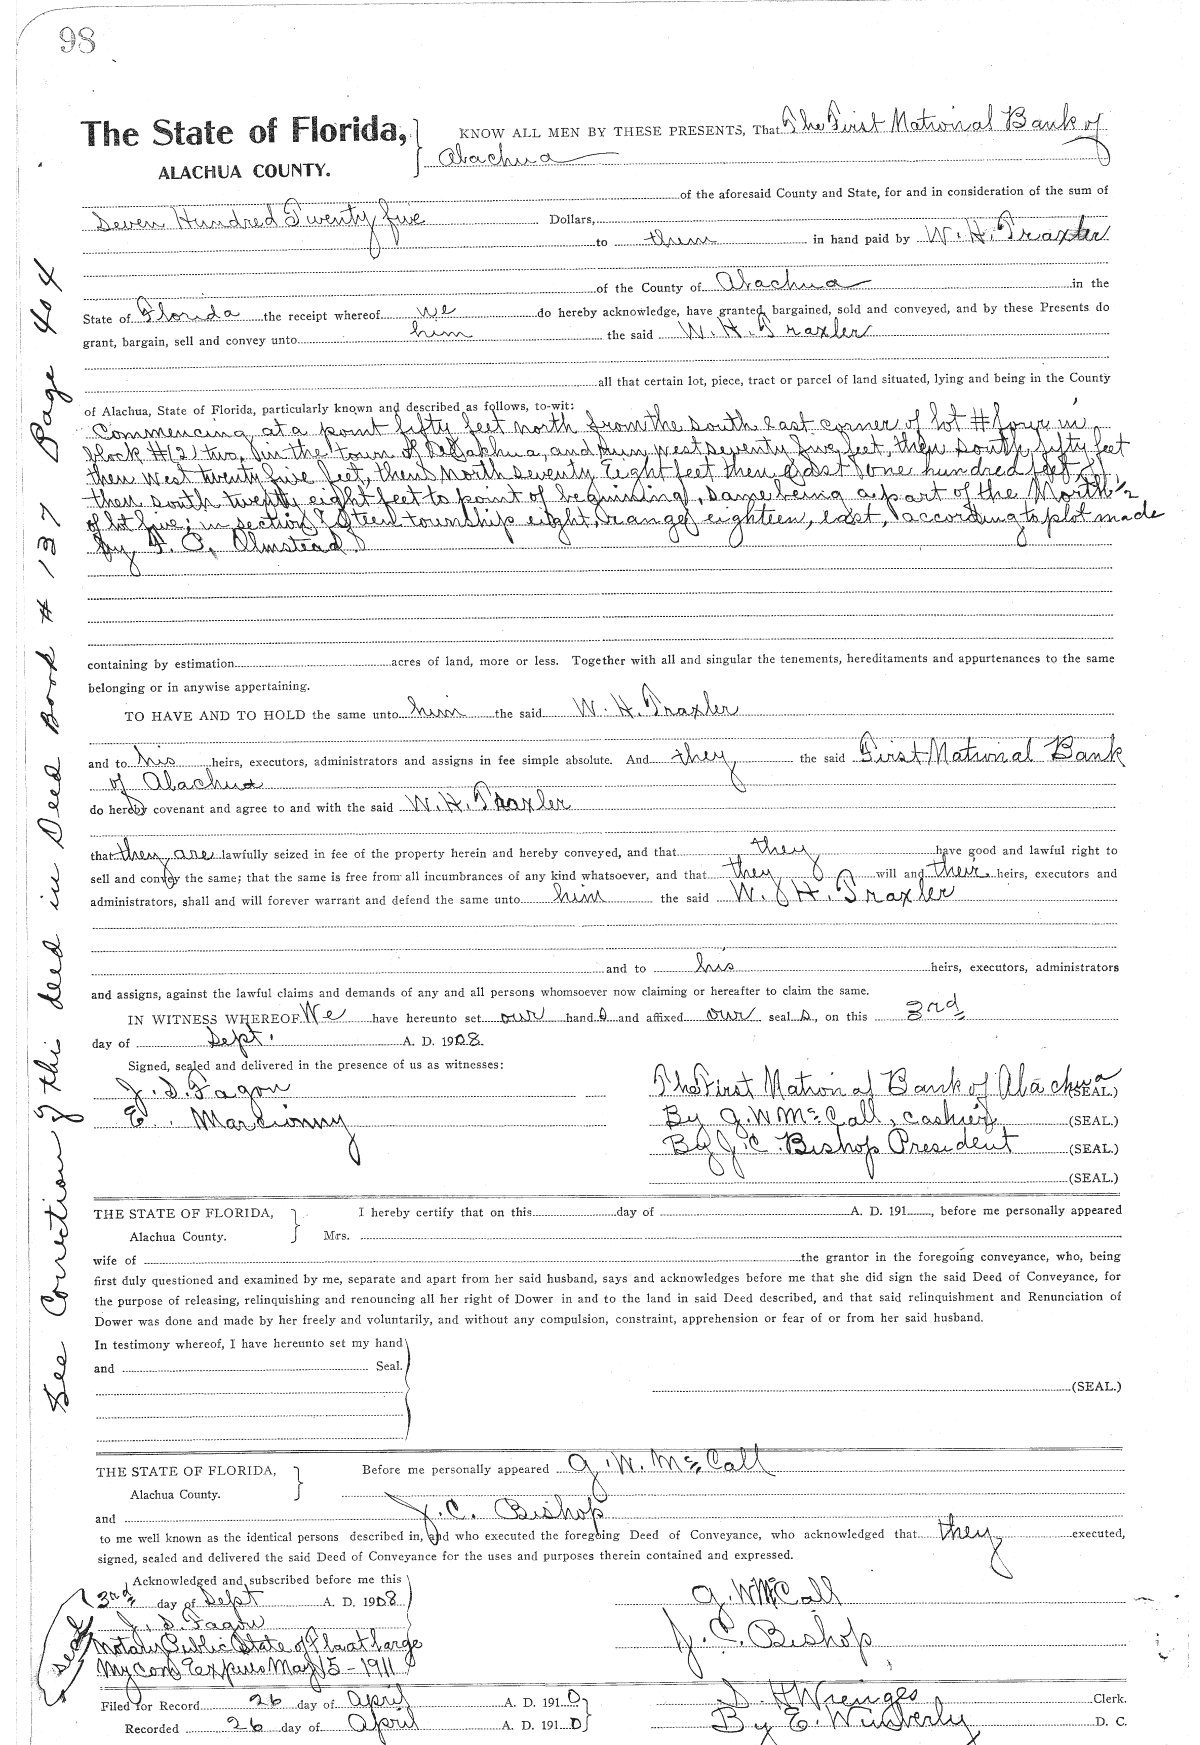 98
The State of Florida, KNOW ALL MEN BY THESE PRESENTS, That The First National Bank of
ALACHUA COUNTY. Alachua
of the aforesaid County and State, for and in consideration of the sum of
Seven Hundred Twenty five Dollars,
to them in hand paid by W. H. Traxler
of the County of Alachua in the
State of Florida the receipt whereof we do hereby acknowledge, have granted, bargained, sold and conveyed, and by these Presents do
grant, bargain, sell and convey unto him the said W. H. Traxler
all that certain lot, piece, tract or parcel of land situated, lying and being in the County
of Alachua, State of Florida, particularly known and described as follows, to-wit:
Commencing at a point fifty feet north from the south east corner of lot # four in
Block #(2) two, in the town of Alachua, and run west seventy five feet, then south fifty feet
then West twenty five feet, then north seventy Eight feet then East one hundred feet
then south twenty eight feet to point of beginning, same being a part of the North 1/2
of lot five; in section township eight, range eighteen, east, according to plot made
by F. C. Olmstead
containing by estimation acres of land, more or less. Together with all and singular the tenements, hereditaments and appurtenances to the same
belonging or in anywise appertaining.
TO HAVE AND TO HOLD the same unto him the said W. H. Traxler
and to his heirs, executors, administrators and assigns in fee simple absolute. And they the said First National Bank
of Alachua
do hereby covenant and agree to and with the said W. H. Traxler
that they are lawfully seized in fee of the property herein and hereby conveyed, and that they have good and lawful right to
sell and convey the same; that the same is free from all incumbrances of any kind whatsoever, and that they will and their heirs, executors and
administrators, shall and will forever warrant and defend the same unto him the said W. H. Traxler
and to his heirs, executors, administrators
and assigns, against the lawful claims and demands of any and all persons whomsoever now claiming or hereafter to claim the same.
IN WITNESS WHEREOF We have hereunto set our hand s and affixed our seal s, on this 3rd
day of Sept. A. D. 1908.
Signed, sealed and delivered in the presence of us as witnesses:
J. S. Fagon The First National Bank of Alachua (SEAL.)
E. By G. W McCall, cashier (SEAL.)
By J. C. Bishop President (SEAL.)
(SEAL.)
THE STATE OF FLORIDA, I hereby certify that on this day of A. D. 191 , before me personally appeared
Alachua County. Mrs.
wife of the grantor in the foregoing conveyance, who, being
first duly questioned and examined by me, separate and apart from her said husband, says and acknowledges before me that she did sign the said Deed of Conveyance, for
the purpose of releasing, relinquishing and renouncing all her right of Dower in and to the land in said Deed described, and that said relinquishment and Renunciation of
Dower was done and made by her freely and voluntarily, and without any compulsion, constraint, apprehension or fear of or from her said husband.
In testimony whereof, I have hereunto set my hand
and Seal.
(SEAL.)
THE STATE OF FLORIDA, Before me personally appeared G. W. McCall
Alachua County.
and J. C. Bishop
to me well known as the identical persons described in, and who executed the foregoing Deed of Conveyance, who acknowledged that they executed,
signed, sealed and delivered the said Deed of Conveyance for the uses and purposes therein contained and expressed.
Acknowledged and subscribed before me this
3rd day of Sept A. D. 1908 G. W McCall
J. S. Fagon J. C. Bishop
Seal Notary Public State of Fla at large
My Com Expires May 15 - 1911
Filed for Record 26 day of April A. D. 1910 Clerk.
Recorded 26 day of April A. D. 1910 By E. Wimberly D. C.
See Correction of this deed in Deed Book # 137 Page 404